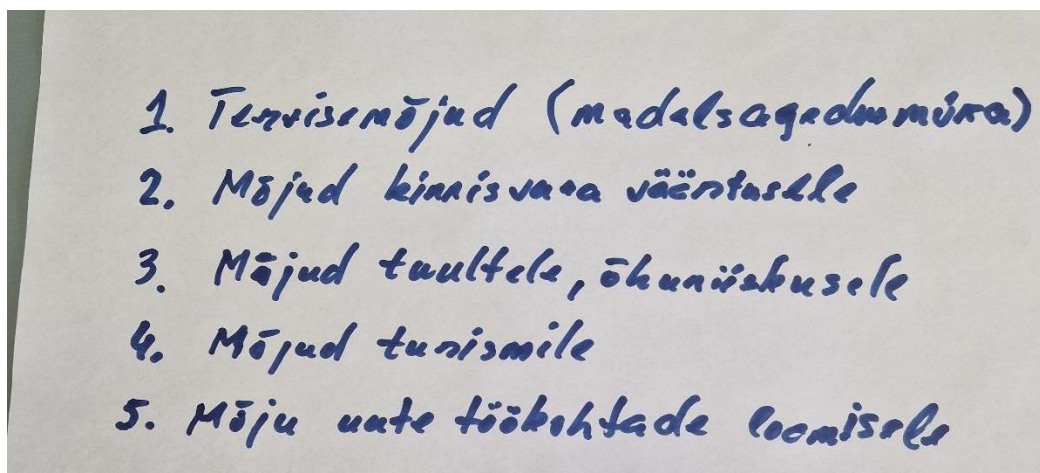 1. Tervisemõjud (madalsagedusmüra)
2. Mõjud kinnisvara väärtusele
3. Mõjud tuultele, õhuniiskusele
4. Mõjud turismile
5. Mõju uute töökohtade loomisele